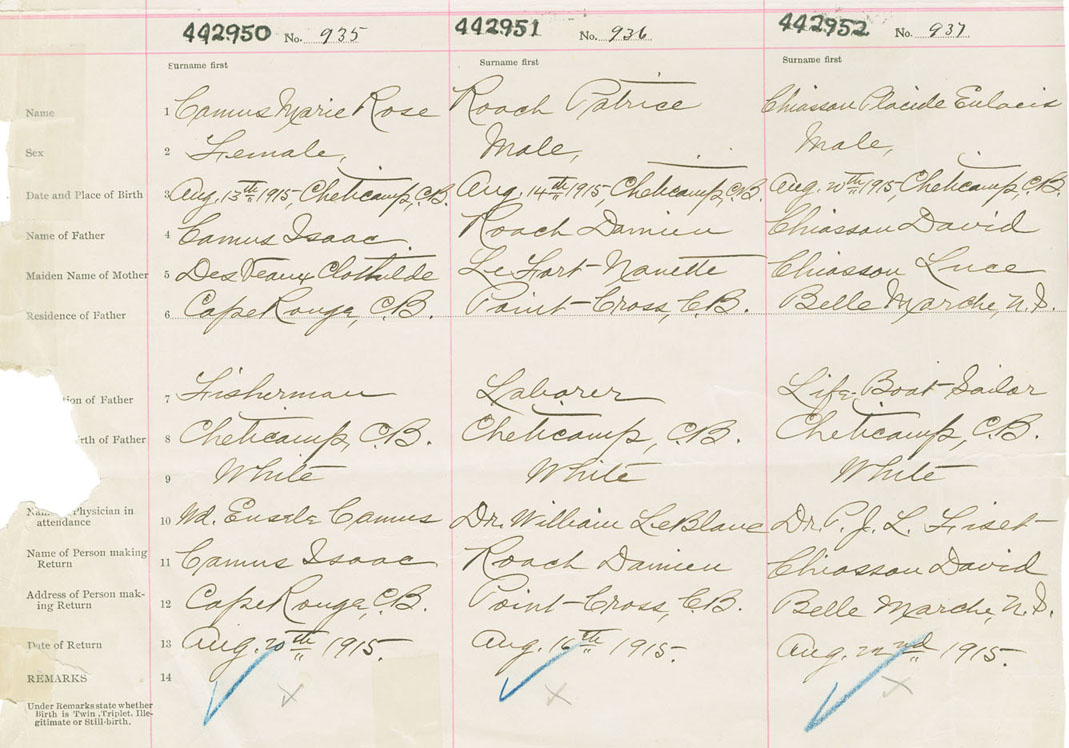 442950 No. 935 442951 No. 936 442952 No. 937
Surname first Surname first Surname first
Name 1 Camus Marie Rose Roach Patrice Chiasson Placide
Sex 2 Female, Male, Male,
Date and Place of Birth 3 Aug. 13th 1915, Cheticamp, C.B. Aug. 14th 1915, Cheticamp, C.B. Aug. 20th 1915, Cheticamp, C.B.
Name of Father 4 Camus Isaac. Roach Damien Chiasson David
Maiden Name of Mother 5 DesVeaux Clothilde Le Fort Nanette Chiasson Luce
Residence of Father 6 Cape Rouge, C.B. Point-Cross, C.B. Belle Marche, N.S.
tion of Father 7 Fisherman Laborer Life-Boat Sailor
rth of Father 8 Cheticamp, C.B. Cheticamp, C.B. Cheticamp, C.B.
9 White White White
Physician in
attendance 10 Camus Dr. William LeBlanc Dr. P. J. L. Fiset
Name of Person making
Return 11 Camus Isaac Roach Damien Chiasson David
Address of Person mak-
ing Return 12 Cape Rouge, C.B. Point-Cross, C.B. Belle Marche, N.S.
Date of Return 13 Aug. 20th 1915. Aug. 16th 1915. Aug. 22nd 1915.
REMARKS 14
Under Remarks state whether
Birth is Twin, Triplet, Ille-
gitimate or Still-birth.